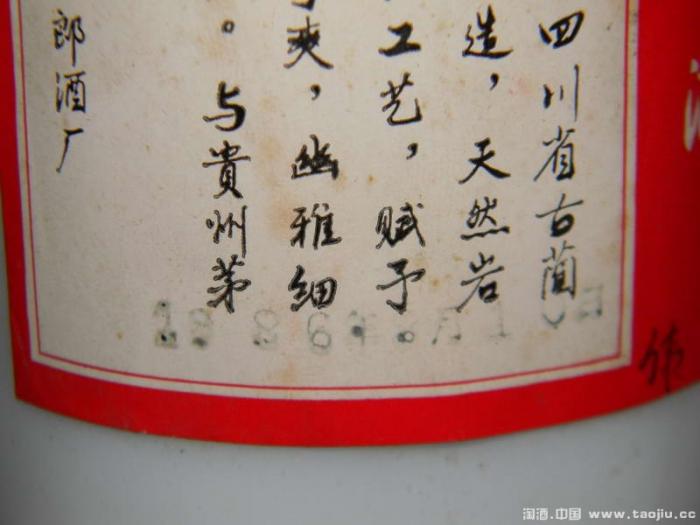 四川省古蔺
造，天然岩
工艺，赋予
爽，幽雅细
。与貴州茅
郎酒厂
淘酒.中国 www.taojiu.cc